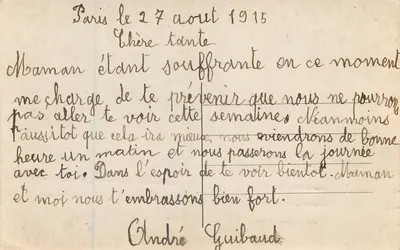 Paris le 27 aout 1915
Chère tante
Maman étant souffrante en ce moment
me charge de te prévenir que nous ne pourrons
pas aller te voir cette semaine. Néanmoins
aussitot que cela ira mieux, nous viendrons de bonne
heure un matin et nous passerons la journée
avec toi. Dans l'espoir de te voir bientot. Maman
et moi nous t'embrassons bien fort.
André Guibaud